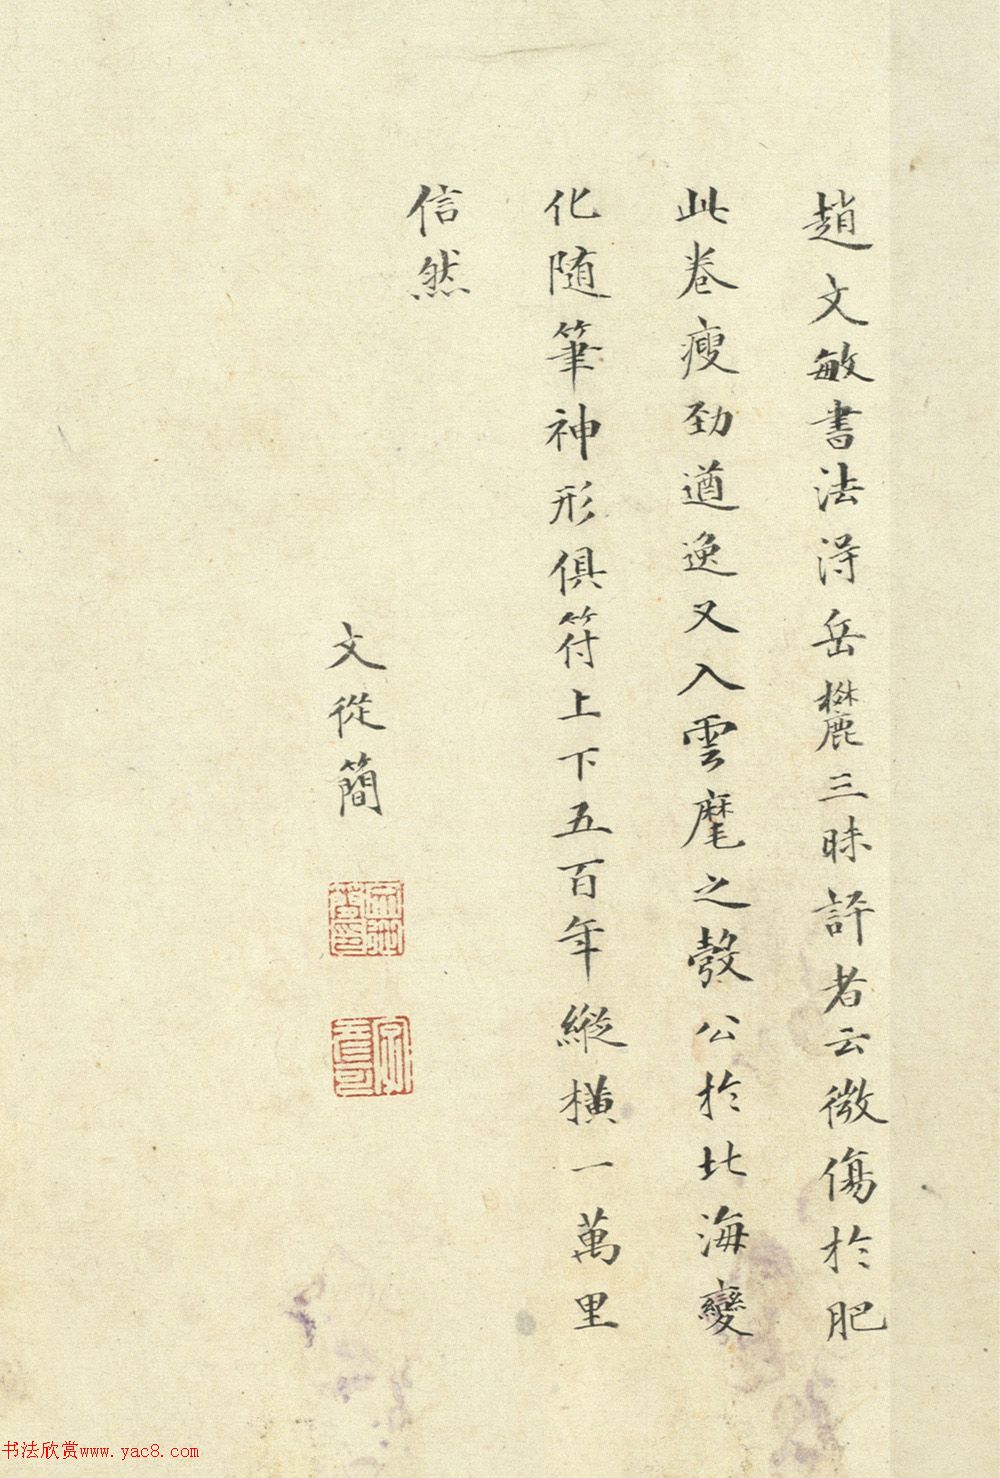 趙文敏書法得岳麓三昧評者云微傷於肥
此卷瘦勁遒逸又入雲麾之彀公於北海變
化随筆神形俱符上下五百年縱橫一萬里
信然
文從簡
书法欣赏www.yac8.com